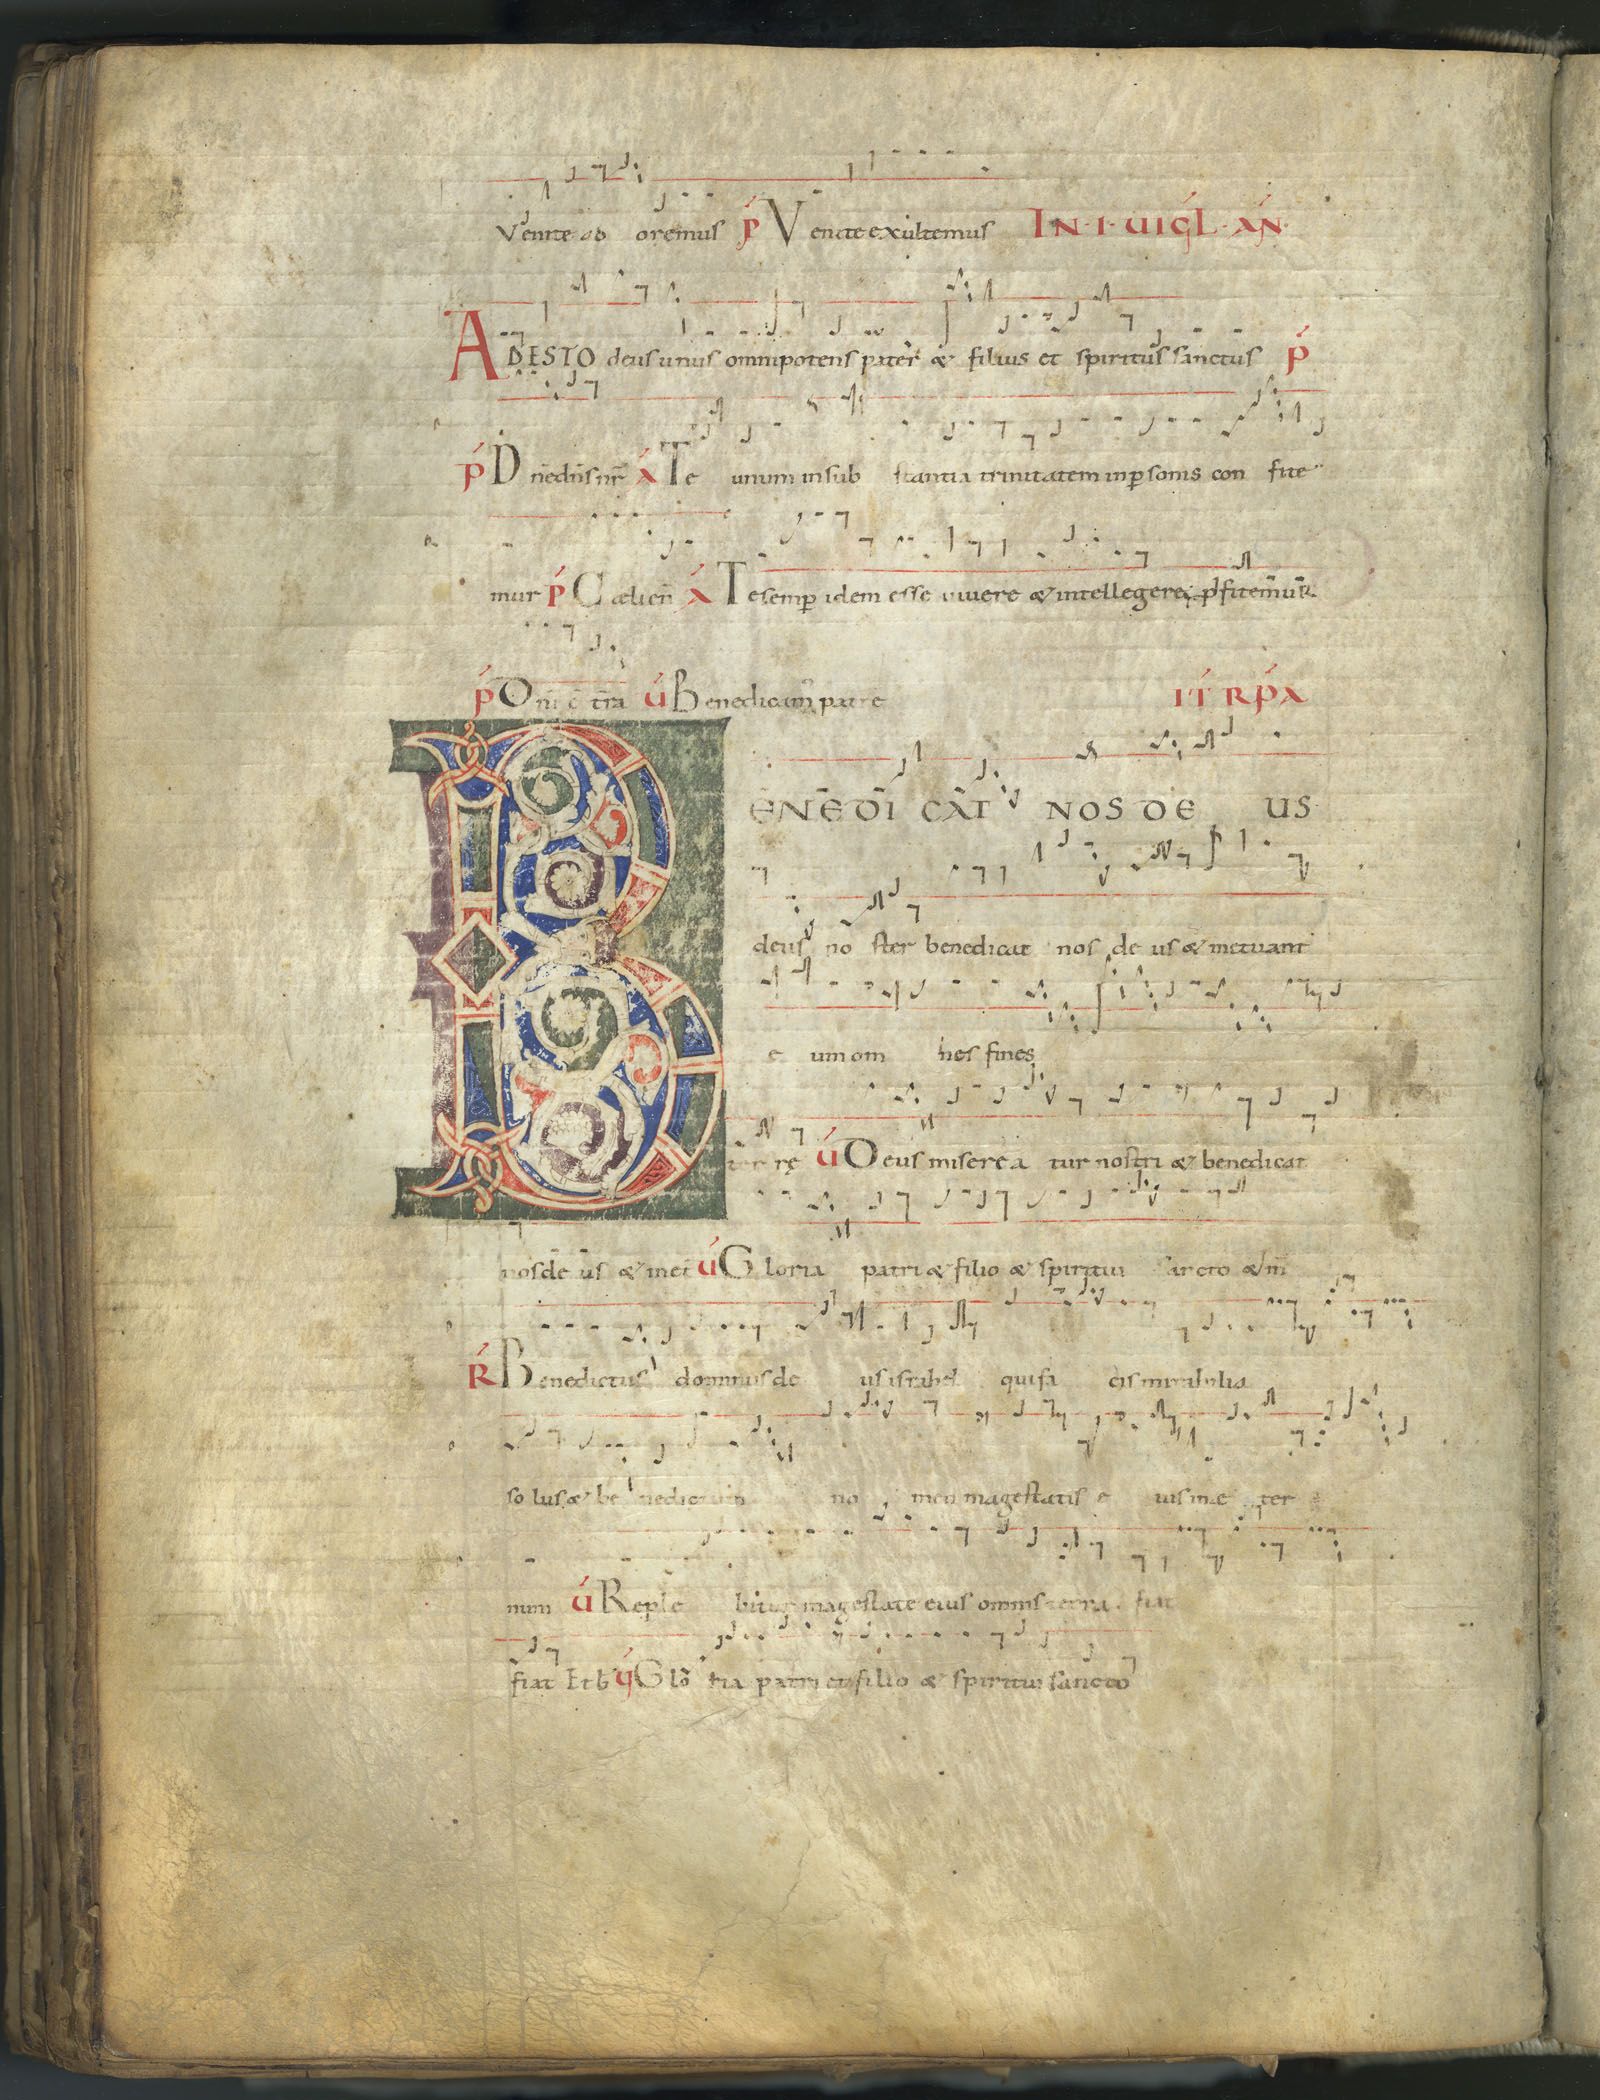 Venite ad oremus p̄ Venite exultemus IN·I·UIGL·AN̄·
ADESTO deus unus omnipotens pater & filius et spiritus sanctus p̄
p̄ Dn̄e dn̄s nr̄ A Te unum in sub stantia trinitatem in psonis con fite
mur p̄ Cæli en̄ A Te semp idem esse uiuere & intellegere
p̄ Dn̄i ē tr̄a V̄ Benedicam patre IT̄ RP̄A
BENEDI CAT NOS DE US
deus no ster benedicat nos de us & metuant
e um om nes fines
ter rę V̄ Deus miserea tur nostri & benedicat
nos de us & met V̄ Gloria patri & filio & spiritui sancto & m̄
R̄ Benedictus dominus de us israhel qui fa cis mirabilia
so lus & be nedictum no men magestatis e ius in æ ter
num V̄ Reple bitur magestate eius omnis terra fiat
fiat Et b V̄ Glo ria patri et filio & spiritui sancto